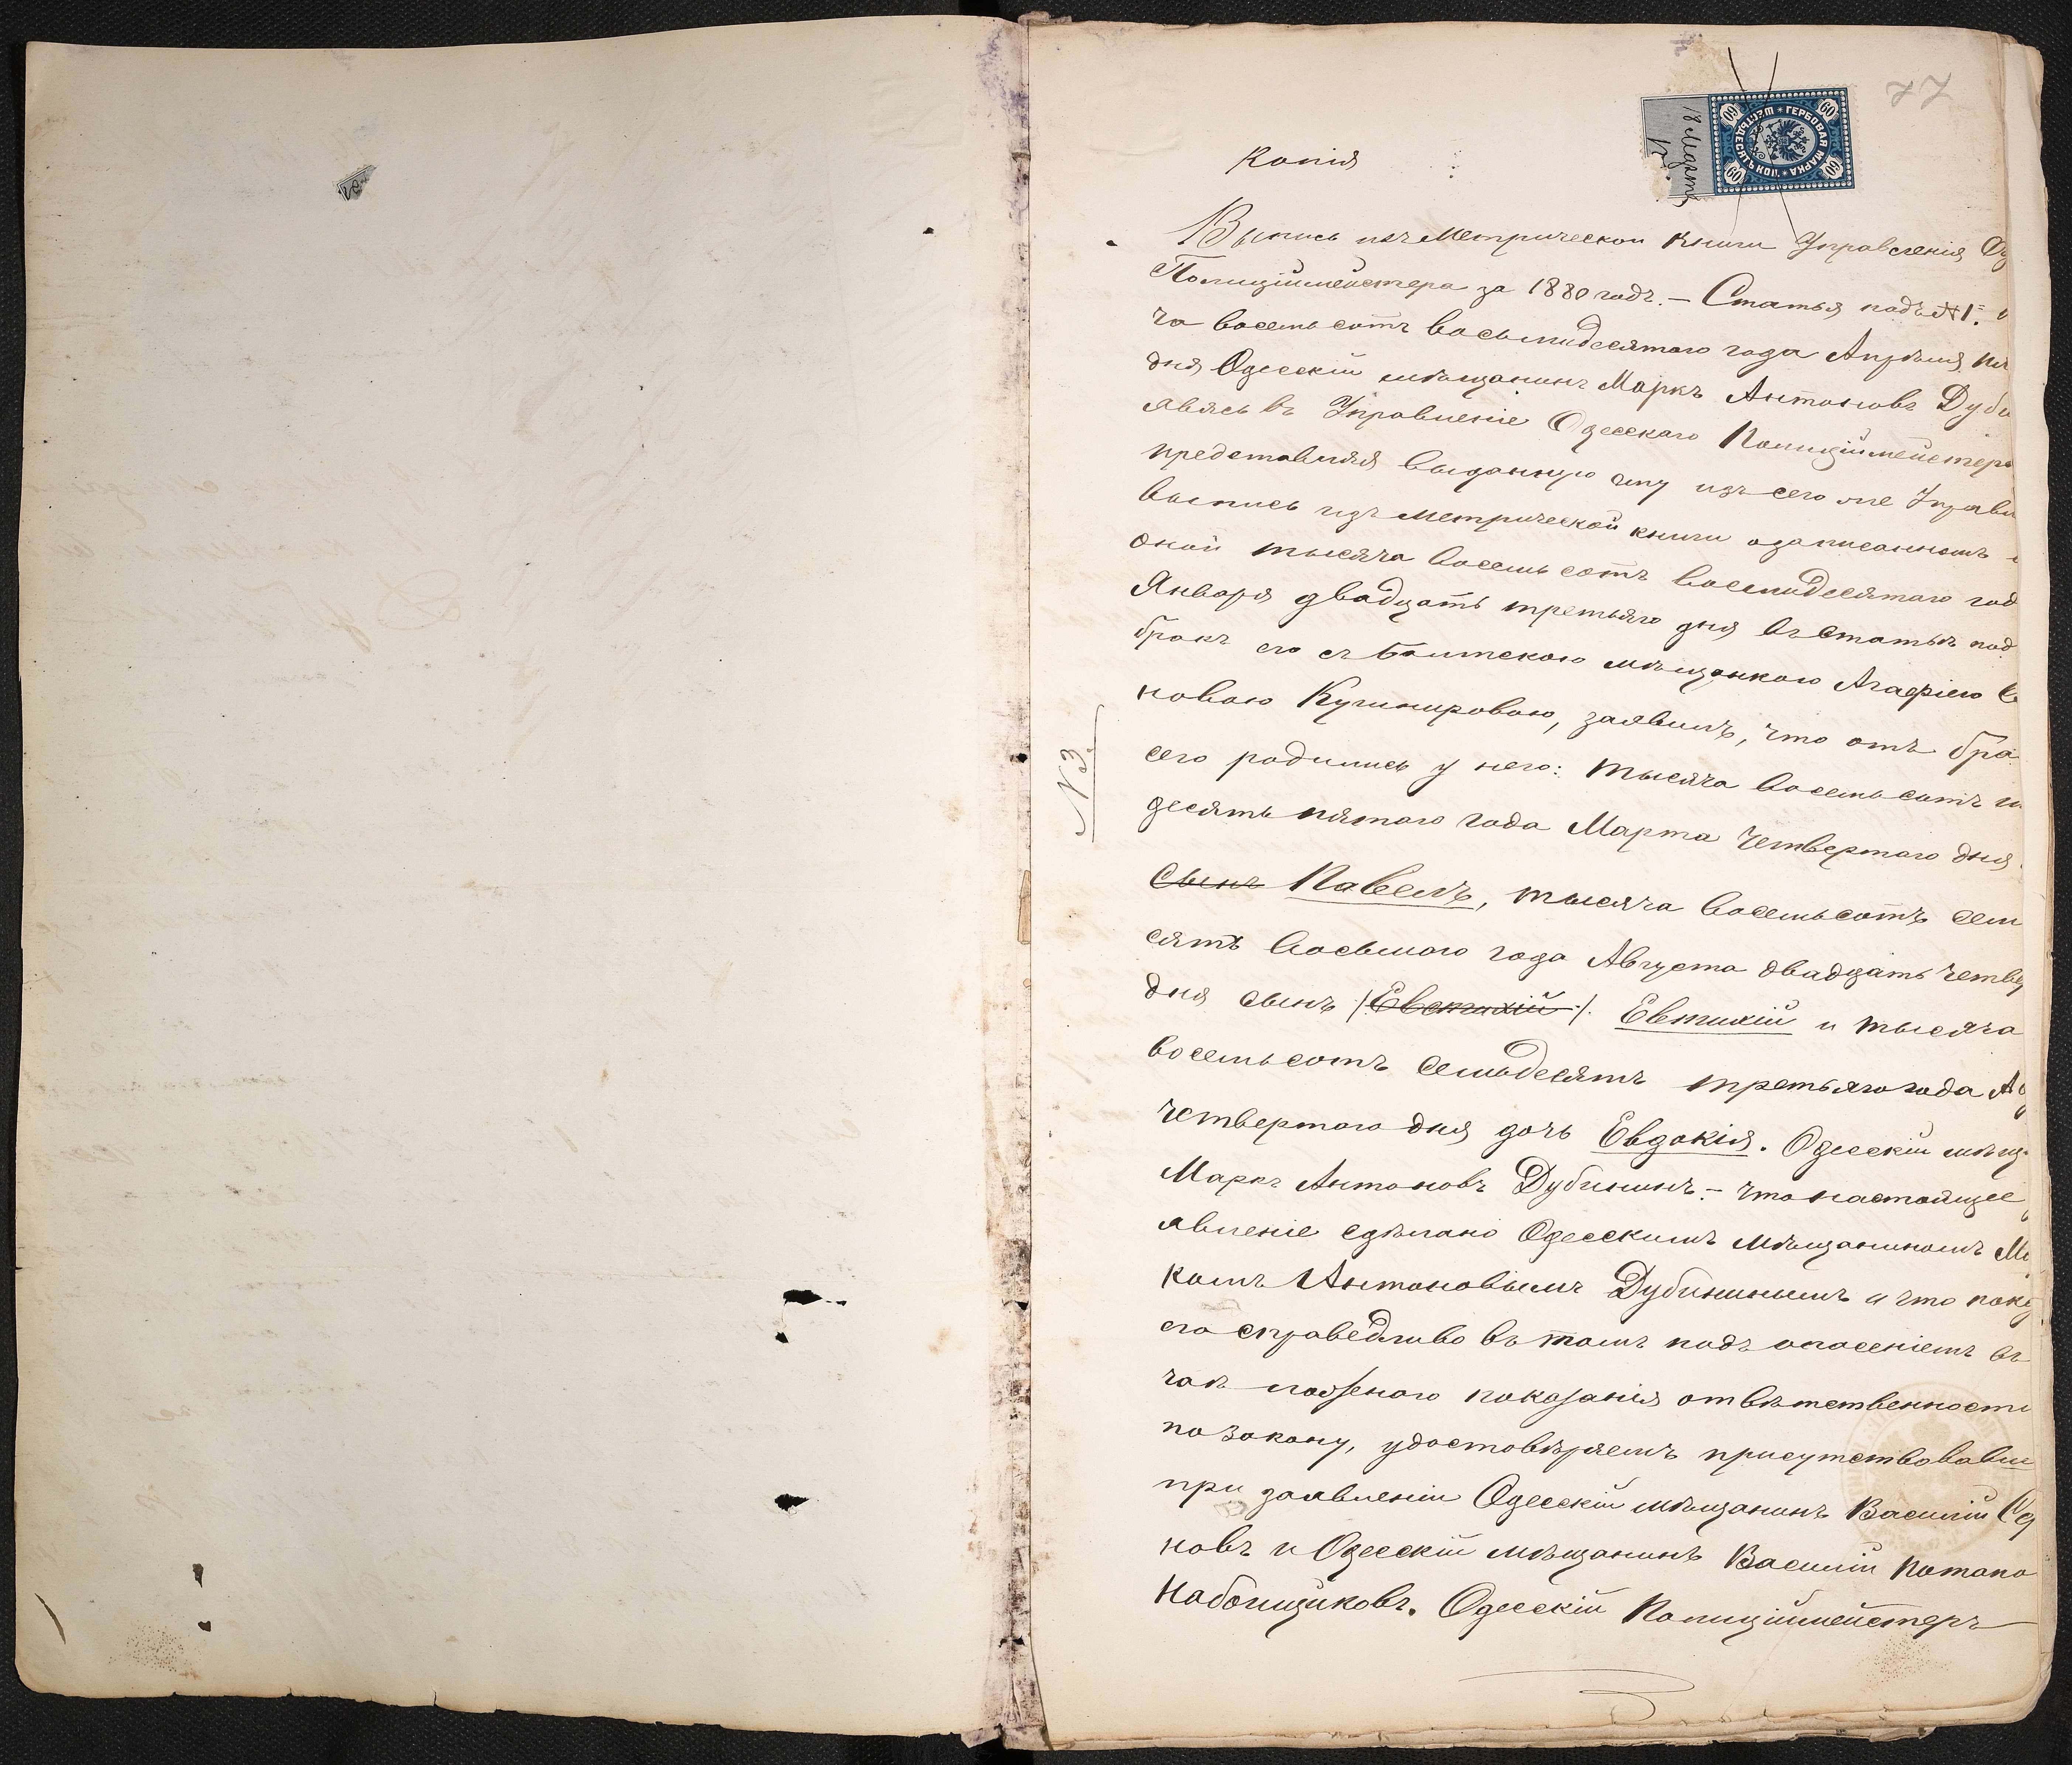 77
18 Марта
ГЕРБОВАЯ МАРКА
60 60 60 60
Копія
Выпись изъ Метрической Книги Управленія
Полиціймейстера за 1880 годъ. — Статья подъ №1.
ча восемьсотъ восьмидесятаго года Апрѣля
дня Одесскій мѣщанинъ Маркъ Антоновъ Дуби
явясь въ Управленіе Одесскаго Полиціймейстера
представляя выданную ему изъ сего же Управл
выпись изъ метрической книги о записанномъ
оной тысяча восемьсотъ восемидесятаго год
Января двадцать третьяго дня въ статьѣ под
бракѣ его съ Балтскою мѣщанкою Агафіею
новою Кушнировою, заявилъ, что отъ бра
сего родились у него: тысяча восемьсотъ
десять пятаго года Марта четвертаго дня
сынъ Павелъ, тысяча восемьсотъ сем
сятъ восьмаго года Августа двадцать четве
дня сынъ /Евстихій/. Евтихій и тысяча
восемьсотъ семьдесятъ третьяго года
четвертаго дня дочь Евдокія. Одесскій мѣщ
Маркъ Антоновъ Дубининъ. — что настоящее
явленіе сдѣлано Одесскимъ мѣщаниномъ Ма
комъ Антоновымъ Дубининымъ и что пока
его справедливо въ томъ подъ опасеніемъ въ
чаѣ ложнаго показанія отвѣтственности
по закону, удостовѣряемъ присутствовавш
при заявленіи Одесскій мѣщанинъ Василій
новъ и Одесскій мѣщанинъ Василій Потапо
Набойщиковъ. Одесскій Полиціймейстеръ
№3